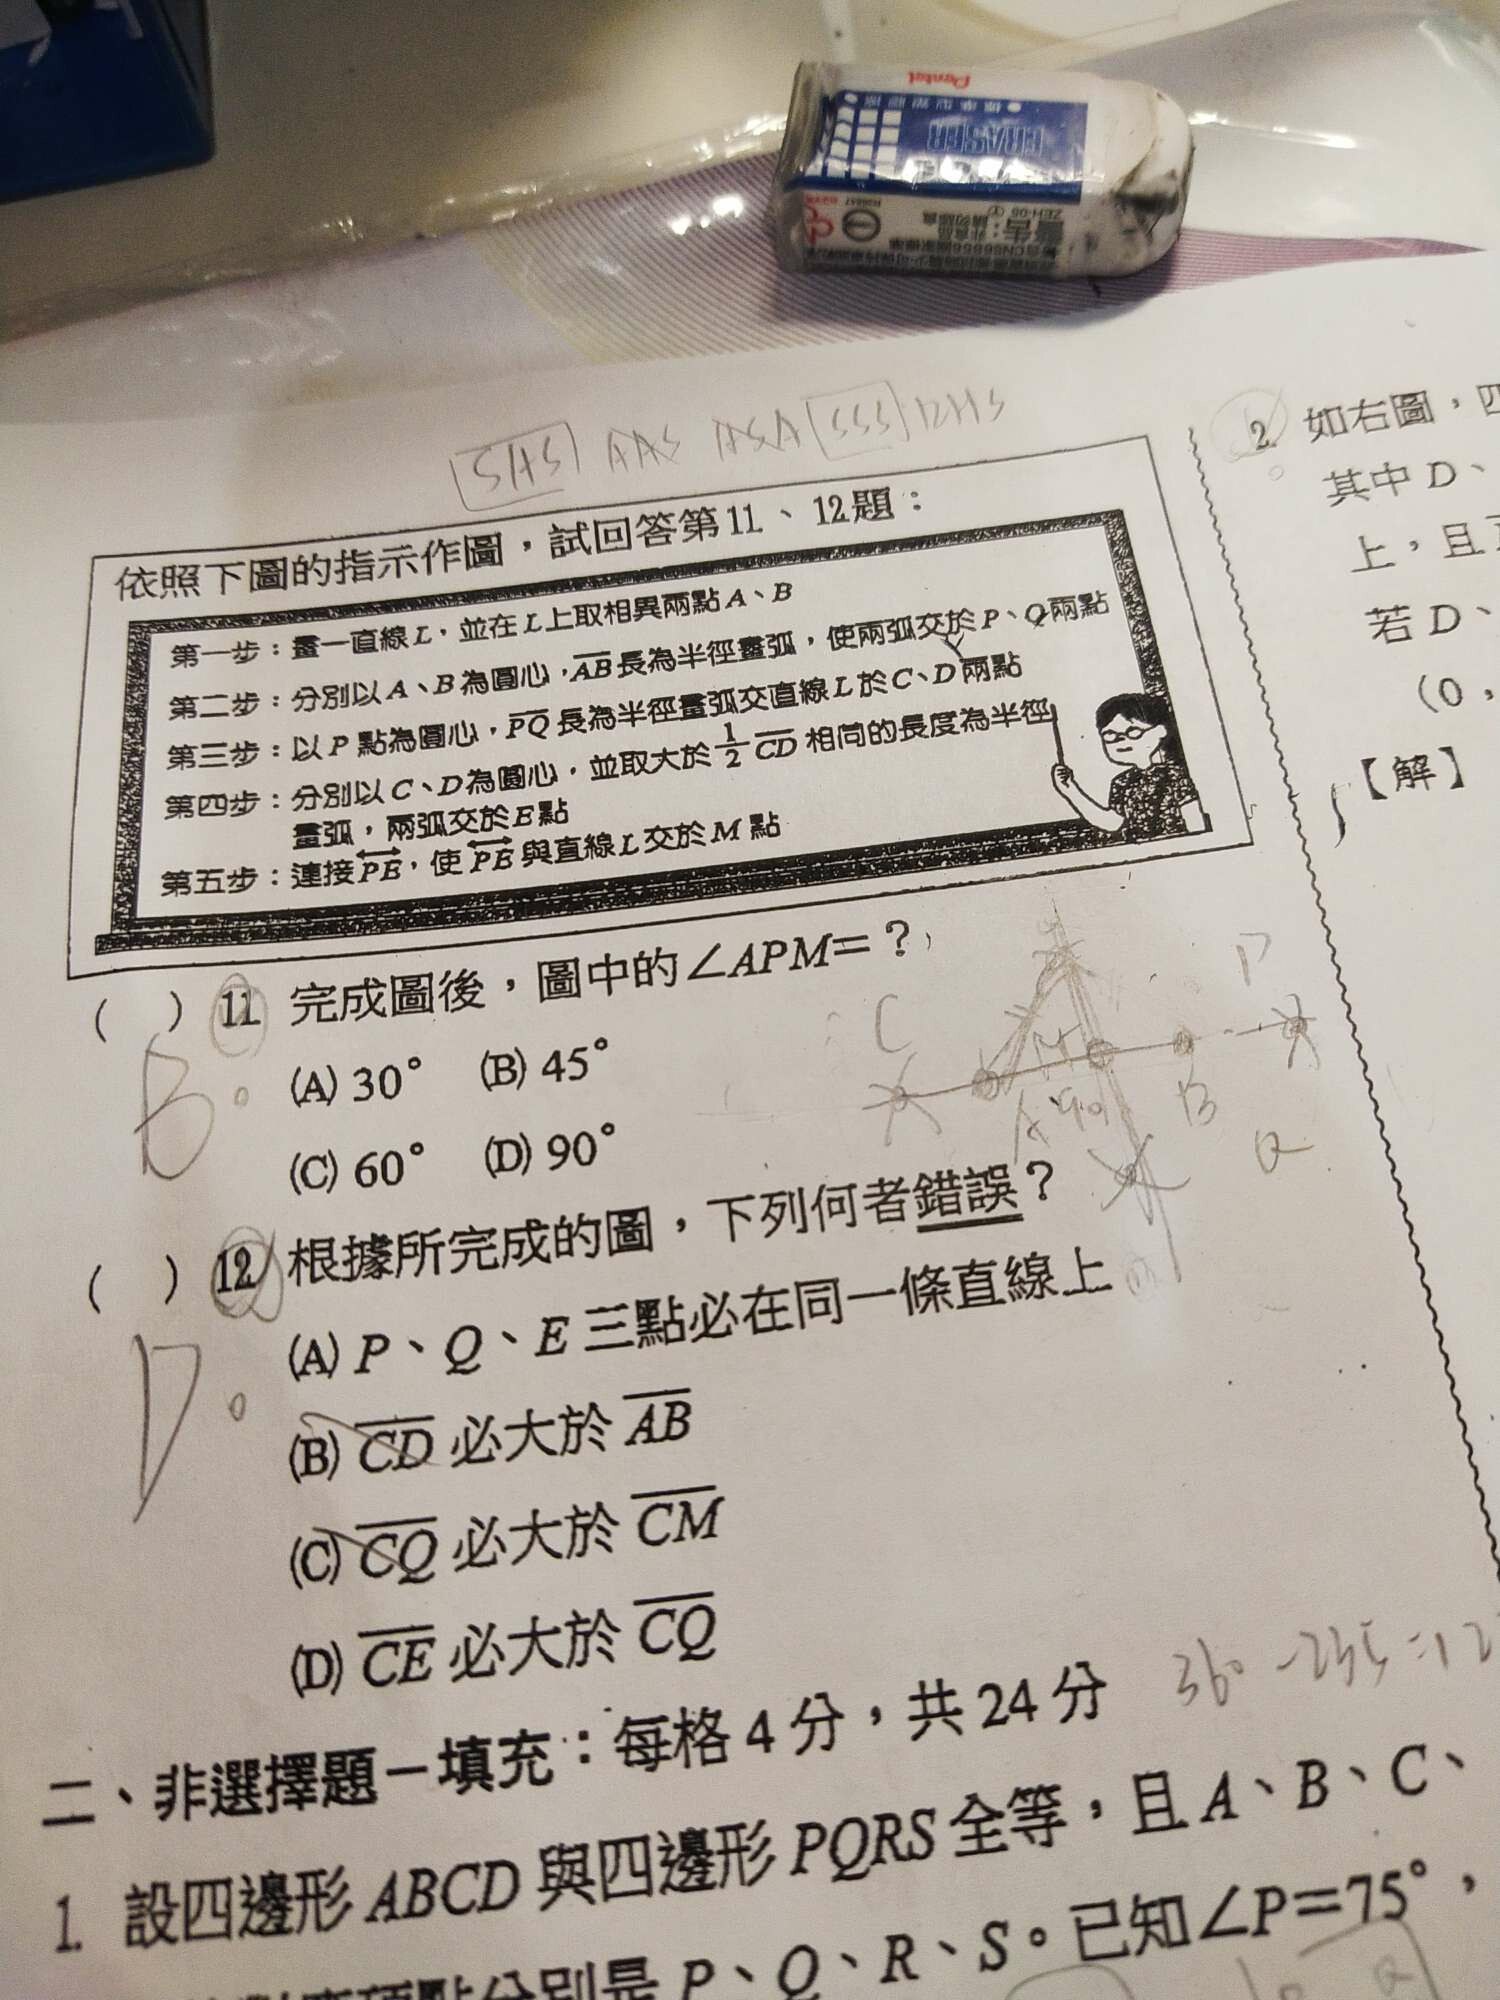 Pentel
標準型塑膠擦
ERASER
R38857
ZEH-05
警告:
非食品
請勿吞食
SAS AAS ASA SSS RHS
依照下圖的指示作圖,試回答第11、12題:
第一步:畫一直線L,並在L上取相異兩點A、B
第二步:分別以A、B為圓心,AB長為半徑畫弧,使兩弧交於P、Q兩點
第三步:以P點為圓心,PQ長為半徑畫弧交直線L於C、D兩點
第四步:分別以C、D為圓心,並取大於1/2 CD相同的長度為半徑
畫弧,兩弧交於E點
第五步:連接PE,使PE與直線L交於M點
( ) 11. 完成圖後,圖中的∠APM=?
(A) 30° (B) 45°
(C) 60° (D) 90°
B
C M A B P Q
( ) 12. 根據所完成的圖,下列何者錯誤?
(A) P、Q、E三點必在同一條直線上
(B) CD必大於AB
(C) CQ必大於CM
(D) CE必大於CQ
D
二、非選擇題-填充:每格4分,共24分
1. 設四邊形ABCD與四邊形PQRS全等,且A、B、C、
P、Q、R、S。已知∠P=75°,
2. 如右圖,四
其中D、
上,且
若D、
(0,
【解】